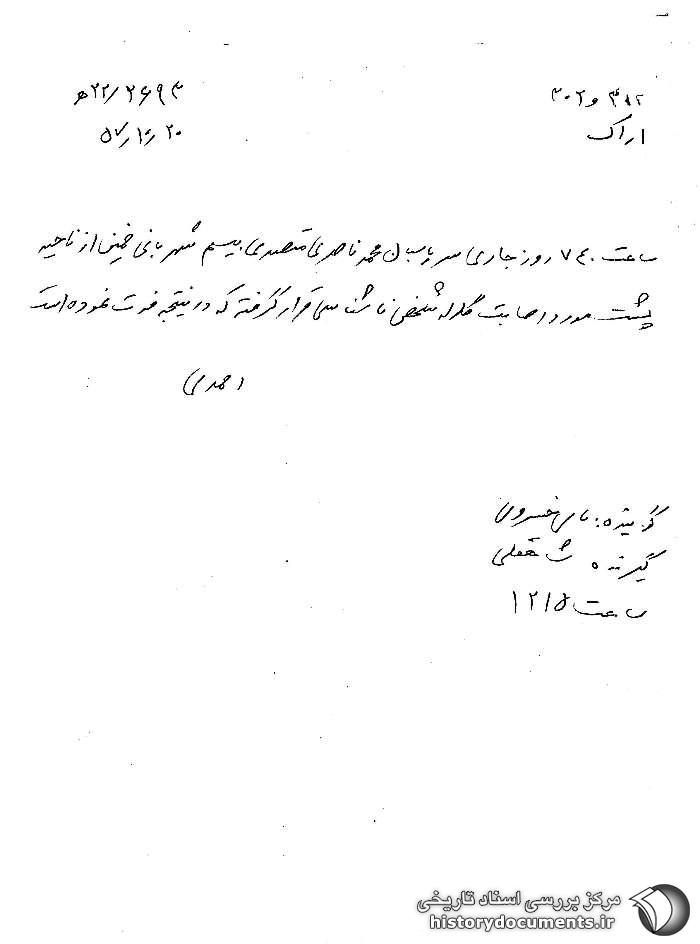 ۳۱۲ و ۳۰۲
۲۲/۲۶۹۳ ه
اراک
۵۷/۱۰/۲۰
ساعت ۷۴۰ روز جاری سر پاسبان محمد ناصری متصدی بیسیم شهربانی خمین از ناحیه
پشت مورد اصابت گلوله شخص ناشناسی قرار گرفته که در نتیجه فوت نموده است
احمدی
گوینده: خسروی
گیرنده
ساعت ۱۲۱۵
مرکز بررسی اسناد تاریخی
historydocuments.ir